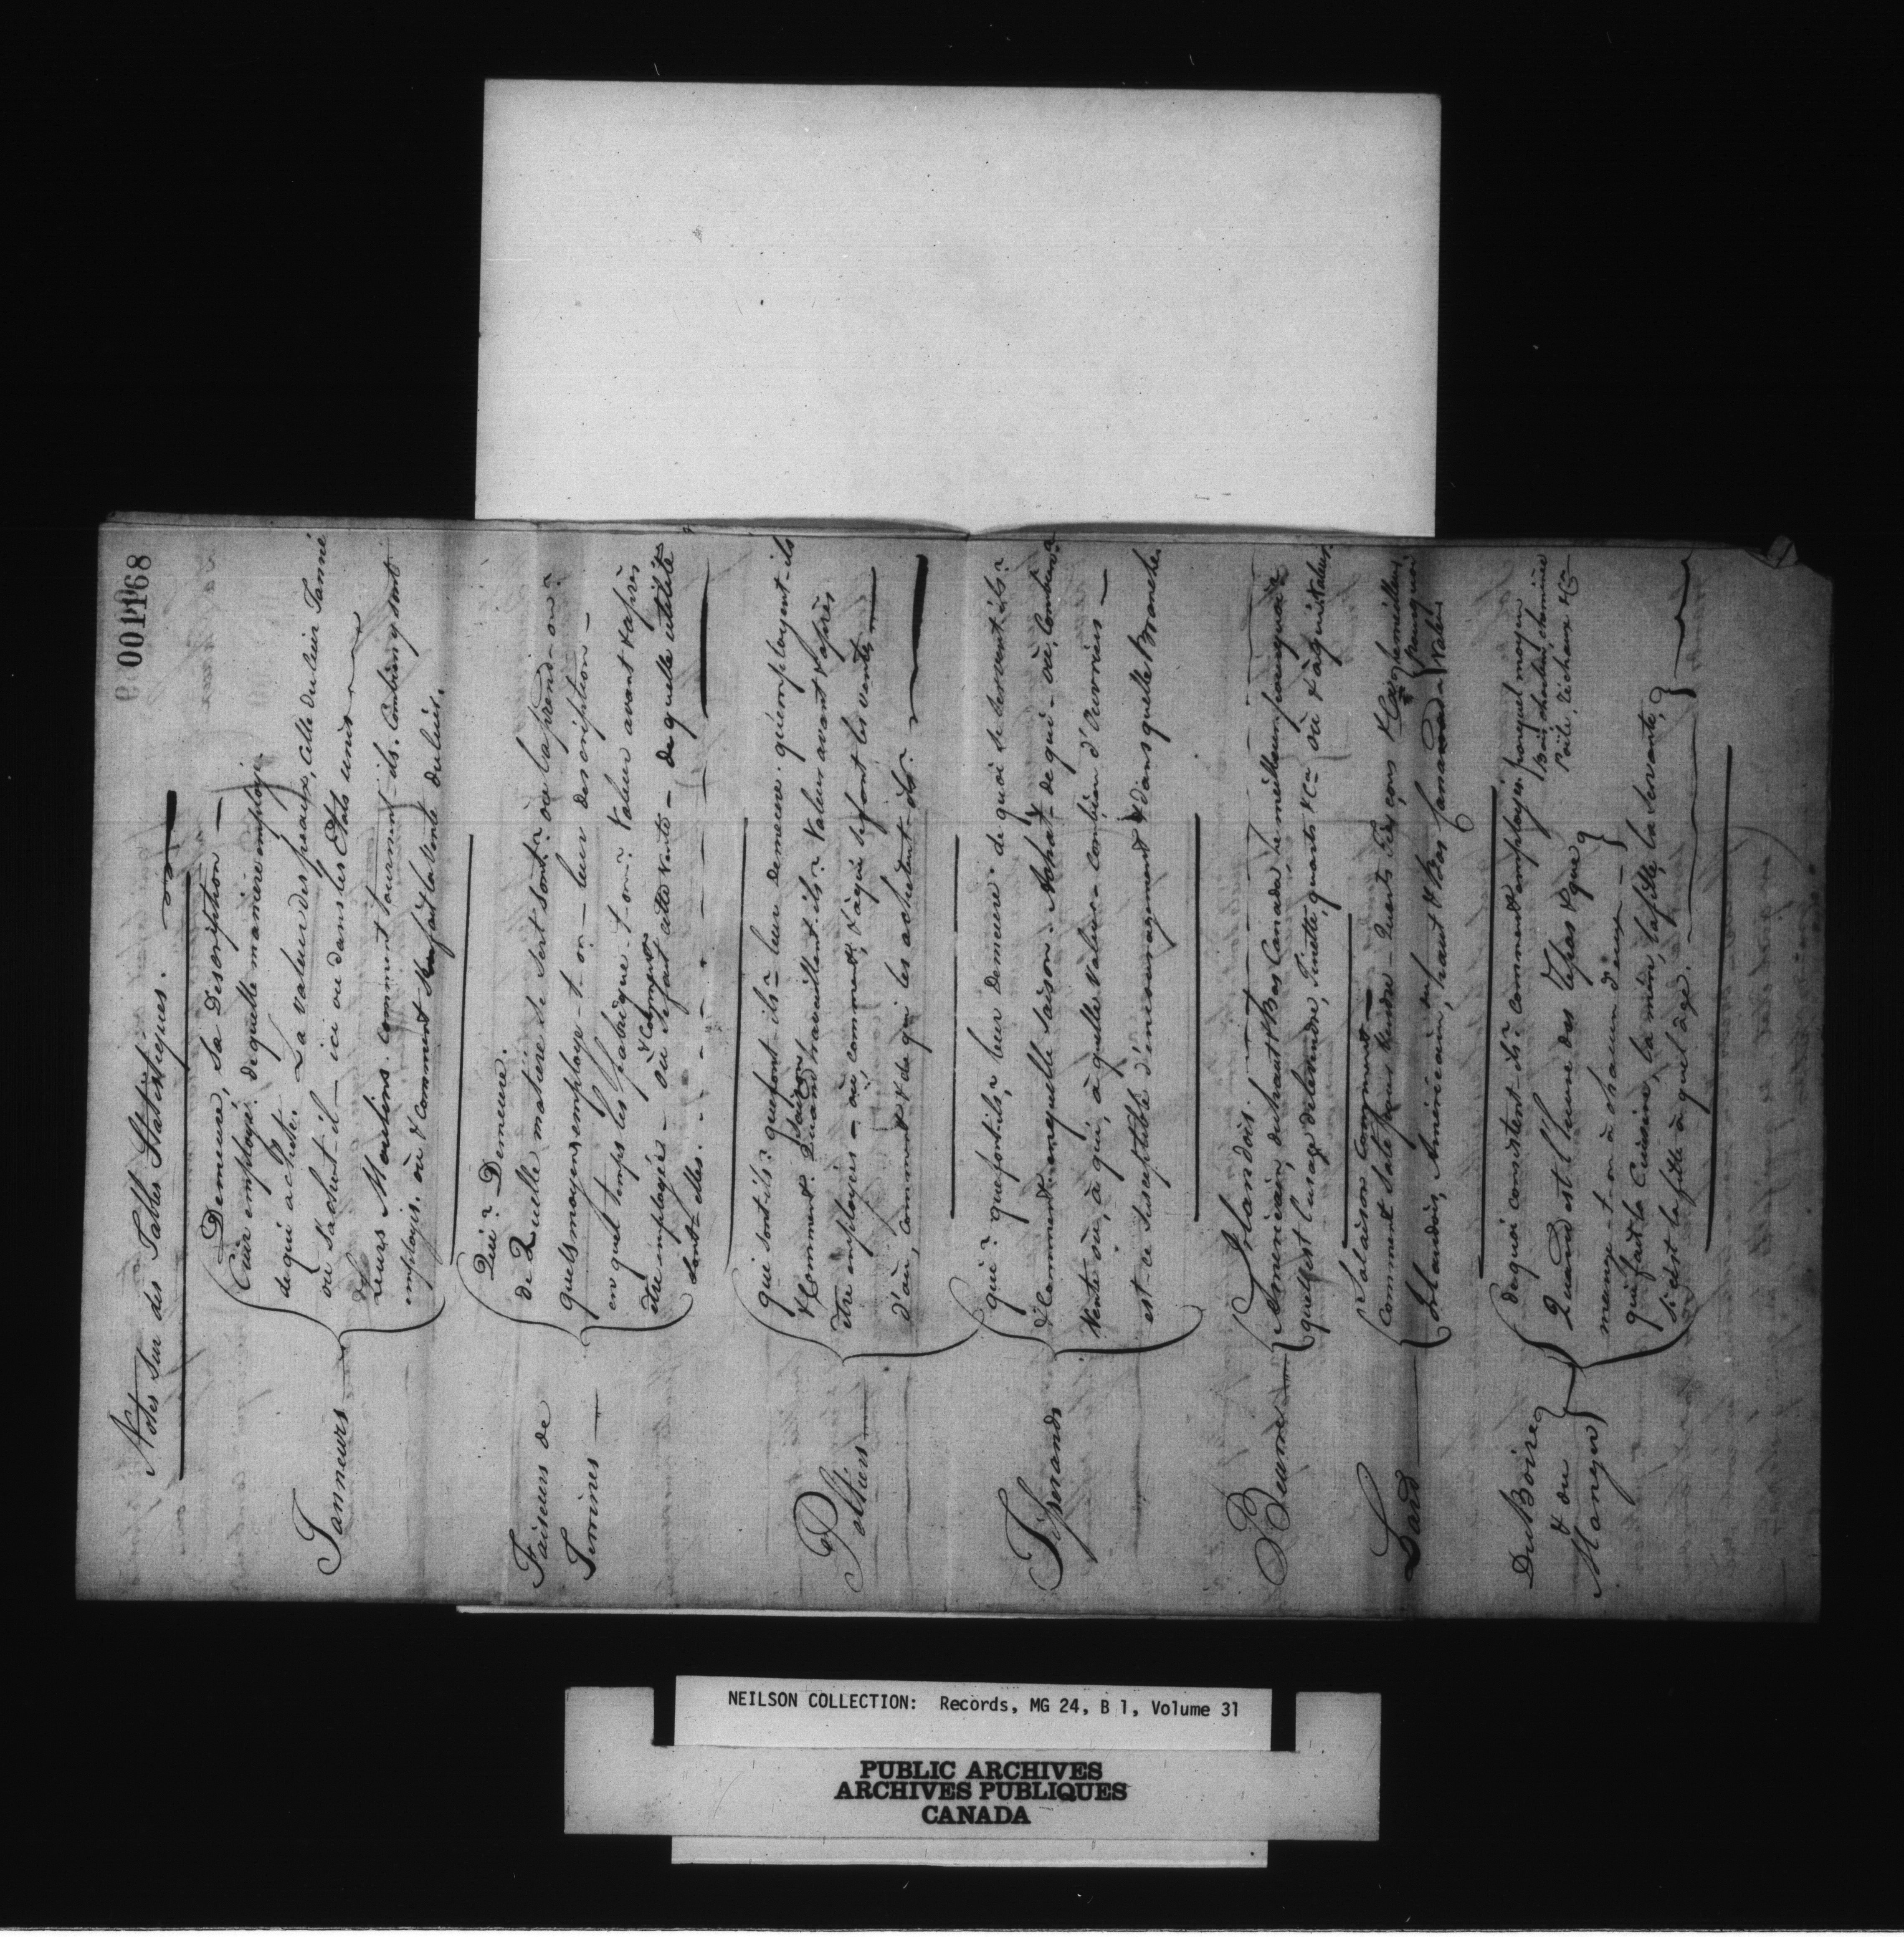 001168
Notes sur des Tables Statistiques.
Demeure, sa Description —
Cuir employé. de quelle manière employé.
de qui acheté. La valeur des peaux, celle du cuir Tanné
où s'achet-il — ici ou dans les Etats unis
Tanneurs
leurs Moulins. comment tournent-ils. Combien y sont
employés. où & comment se fait la vente du cuir.
Qui? Demeure.
de Quelle matière se sert-on? où la prend-on?
Faiseurs de
Terrines —
quels moyens employe-t-on — leur description —
en quel temps les fabrique-t-on? Valeur avant & après
être employée — où & comment se fait cette vente — de quelle utilité
sont-elles.
qui sont-ils? que font-ils? leur demeure. qui employent-ils
& Comment. Quand travaillent-ils? Valeur avant & après
Potiers
être employés — où, comment, & à qui se font les ventes
d'où, comment & de qui les achètent-ils?
qui? que font-ils, leur Demeure. de quoi se servent-ils?
& Comment en quelle saison. Achat — de qui — où, Combien?
Tisserands
Vente où, à qui, à quelle valeur — combien d'Ouvriers —
est-ce susceptible d'encouragement & dans quelle Branche
Irlandois.
Beurre
Américain, du haut & Bas Canada le meilleur pourquoi
quel est l'usage de le vendre, Tinette, quarts &c — où & à qui Valeur
Salaison Comment —
Comment Salé pour Vendre — Quarts
Lard
Irlandois, Américain, haut & Bas Canada Valeur
pourquoi
de quoi consistent-ils? comment employés
par quel moyen
Bois charbon, cheminée
Poële, Rechaux &c
Du Boire
& du
Manger
Quand est l'heure des Repas & que
mange-t-on à chacun d'eux —
qui fait la Cuisine, la mère, la fille, la servante,
si c'est la fille à quel âge.
NEILSON COLLECTION: Records, MG 24, B 1, Volume 31
PUBLIC ARCHIVES
ARCHIVES PUBLIQUES
CANADA